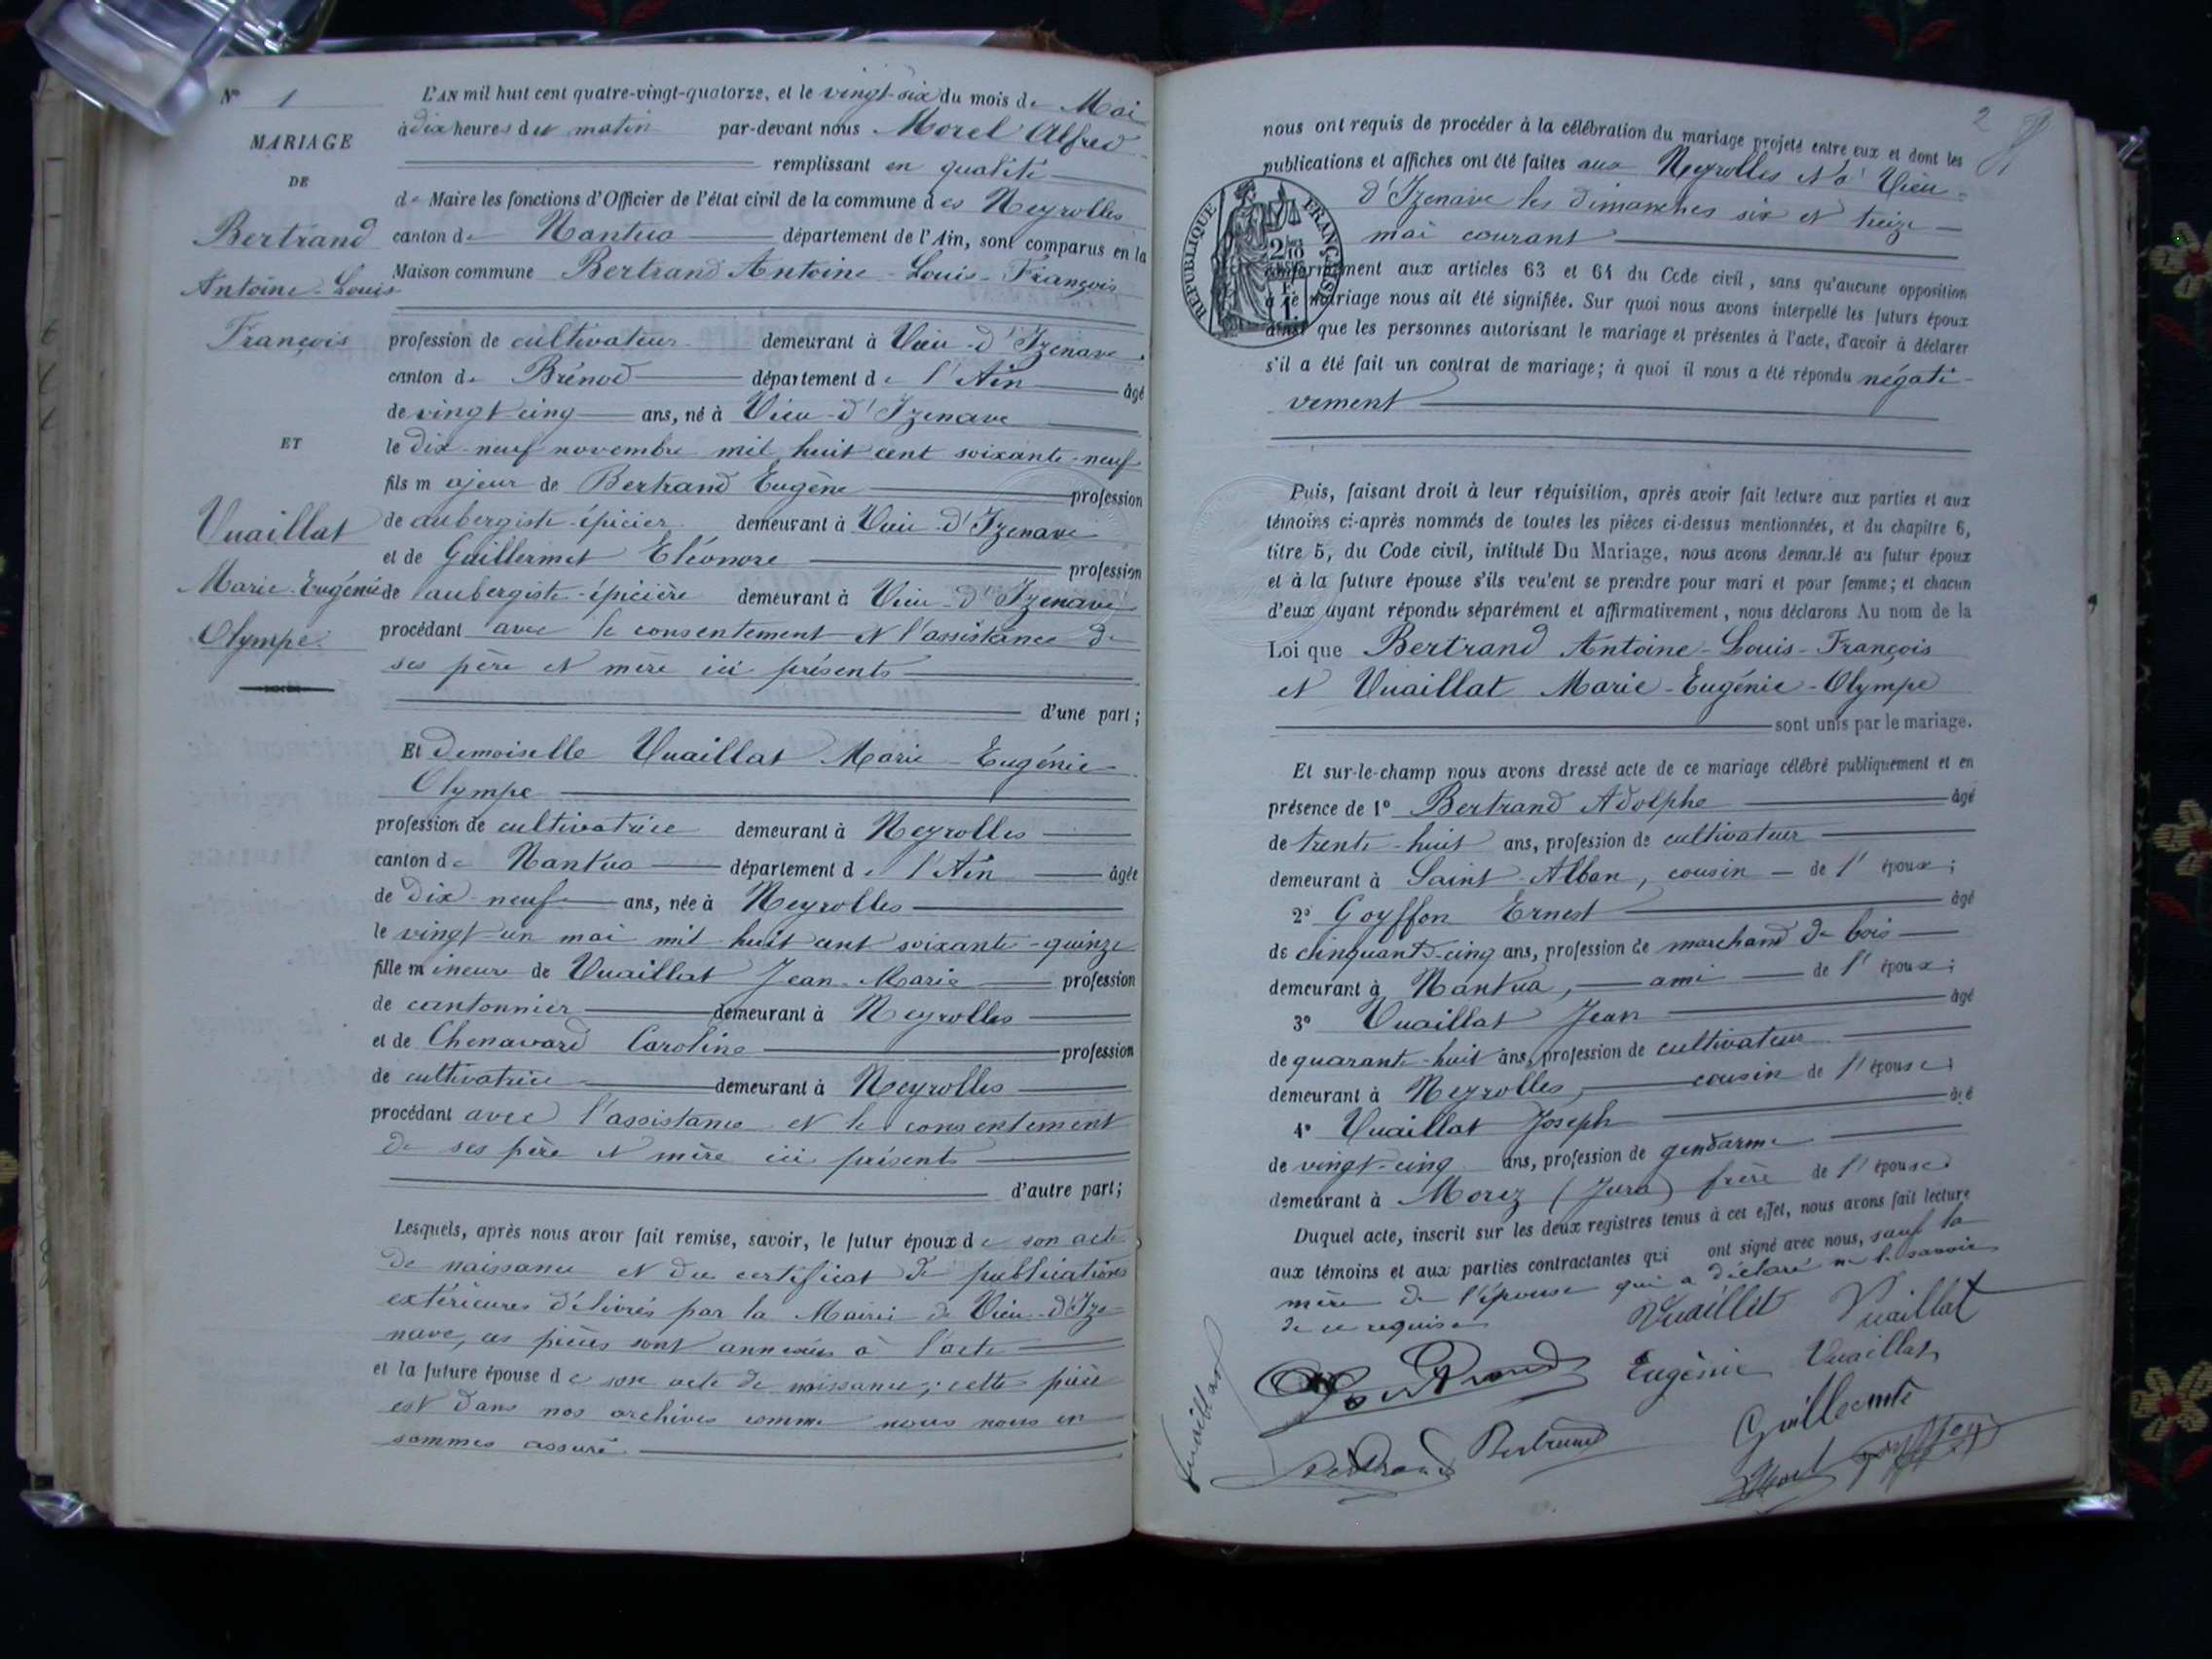 N° 1
MARIAGE
DE
Bertrand
Antoine-Louis
François
ET
Vuaillat
Marie-Eugénie
Olympe
L'AN mil huit cent quatre-vingt-quatorze, et le vingt-six du mois de Mai
à dix heures du matin par-devant nous Morel Alfred
remplissant en qualité
de Maire les fonctions d'Officier de l'état civil de la commune des Neyrolles
canton de Nantua département de l'Ain, sont comparus en la
Maison commune Bertrand Antoine-Louis-François
profession de cultivateur demeurant à Vieu-d'Izenave
canton de Brénod département de l'Ain âgé
de vingt-cinq ans, né à Vieu-d'Izenave
le dix-neuf novembre mil huit cent soixante-neuf
fils majeur de Bertrand Eugène profession
de aubergiste-épicier demeurant à Vieu-d'Izenave
et de Guillermet Eléonore profession
de aubergiste-épicière demeurant à Vieu-d'Izenave
procédant avec le consentement et l'assistance de
ses père et mère ici présents
d'une part;
Et demoiselle Vuaillat Marie-Eugénie
Olympe
profession de cultivatrice demeurant à Neyrolles
canton de Nantua département de l'Ain âgée
de dix-neuf ans, née à Neyrolles
le vingt-un mai mil huit cent soixante-quinze
fille mineure de Vuaillat Jean-Marie profession
de cantonnier demeurant à Neyrolles
et de Chenavard Caroline profession
de cultivatrice demeurant à Neyrolles
procédant avec l'assistance et le consentement
de ses père et mère ici présents
d'autre part;
Lesquels, après nous avoir fait remise, savoir, le futur époux de son acte
de naissance et du certificat de publications
extérieures délivrés par la Mairie de Vieu-d'Ize-
nave, ces pièces sont annexées à l'acte
et la future épouse de son acte de naissance; cette pièce
est dans nos archives comme nous nous en
sommes assuré
2
nous ont requis de procéder à la célébration du mariage projeté entre eux et dont les
publications et affiches ont été faites aux Neyrolles et à Vieu-
d'Izenave les dimanches six et treize
mai courant
RÉPUBLIQUE FRANÇAISE
conformément aux articles 63 et 64 du Code civil, sans qu'aucune opposition
à ce mariage nous ait été signifiée. Sur quoi nous avons interpellé les futurs époux
ainsi que les personnes autorisant le mariage et présentes à l'acte, d'avoir à déclarer
s'il a été fait un contrat de mariage; à quoi il nous a été répondu négati-
vement
Puis, faisant droit à leur réquisition, après avoir fait lecture aux parties et aux
témoins ci-après nommés de toutes les pièces ci-dessus mentionnées, et du chapitre 6,
titre 5, du Code civil, intitulé Du Mariage, nous avons demandé au futur époux
et à la future épouse s'ils veulent se prendre pour mari et pour femme; et chacun
d'eux ayant répondu séparément et affirmativement, nous déclarons Au nom de la
Loi que Bertrand Antoine-Louis-François
et Vuaillat Marie-Eugénie-Olympe
sont unis par le mariage.
Et sur-le-champ nous avons dressé acte de ce mariage célébré publiquement et en
présence de 1° Bertrand Adolphe âgé
de trente-huit ans, profession de cultivateur
demeurant à Saint-Alban, cousin de l'époux;
2° Goyffon Ernest âgé
de cinquante-cinq ans, profession de marchand de bois
demeurant à Nantua, ami de l'époux;
3° Vuaillat Jean âgé
de quarante-huit ans, profession de cultivateur
demeurant à Neyrolles, cousin de l'épouse;
4° Vuaillat Joseph âgé
de vingt-cinq ans, profession de gendarme
demeurant à Morez (Jura) frère de l'épouse
Duquel acte, inscrit sur les deux registres tenus à cet effet, nous avons fait lecture
aux témoins et aux parties contractantes qui ont signé avec nous, sauf la
mère de l'épouse qui a déclaré ne le savoir
de ce requise
Vuaillat Vuaillat
Bertrand Eugénie Vuaillat
Vuaillat
Bertrand Bertrand
Morel Goyffon